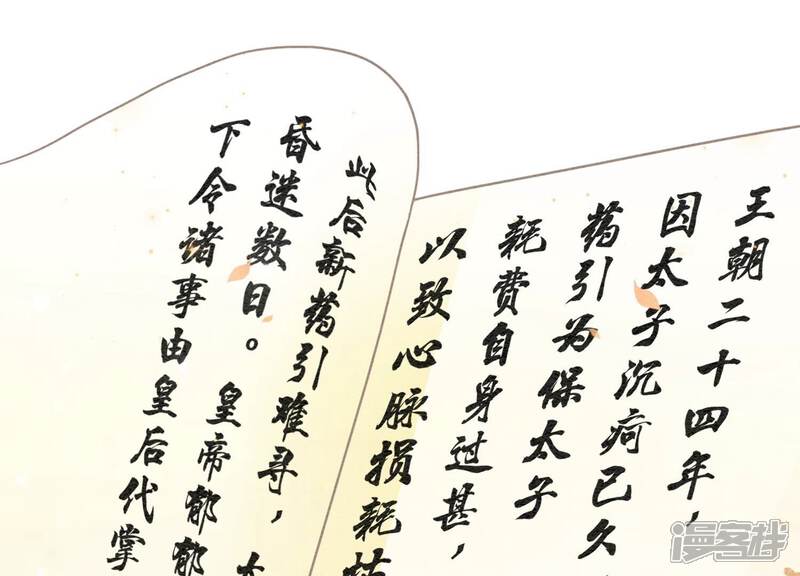 王朝二十四年，
因太子沉疴已久
葯引为保太子
耗费自身过甚，
以致心脉损耗
此后新葯引难寻，
昏迷数日。皇帝郁郁
下令诸事由皇后代掌
漫客栈